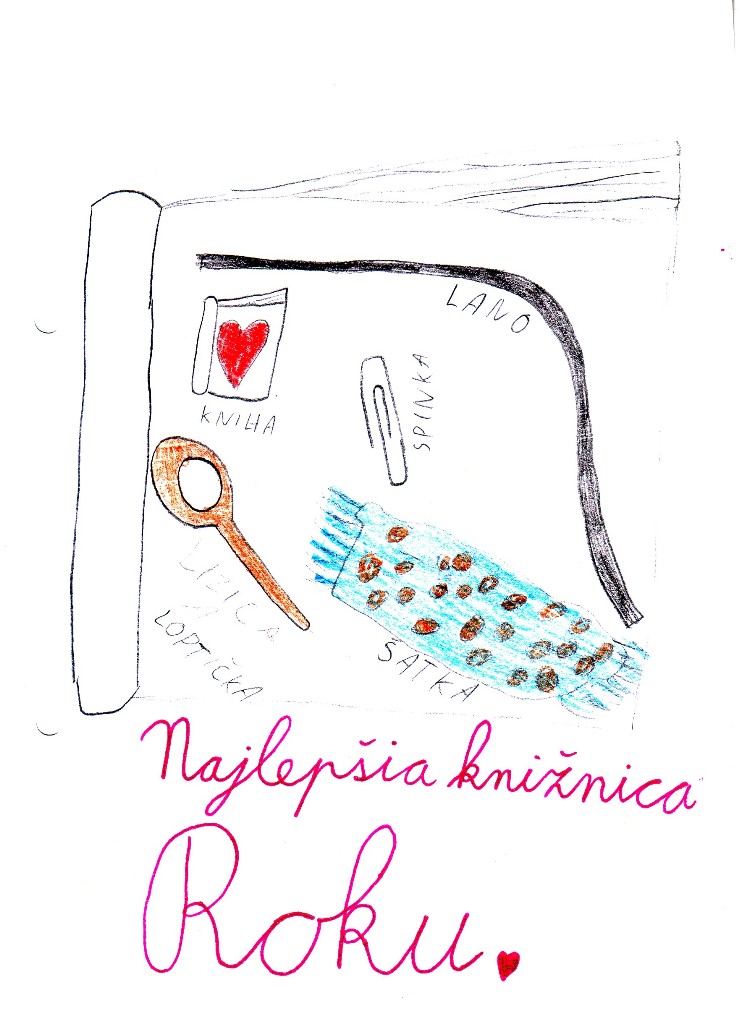 LANO
KNIHA
SPINKA
LOPTIČKA
ŠATKA
Najlepšia knižnica
Roku.